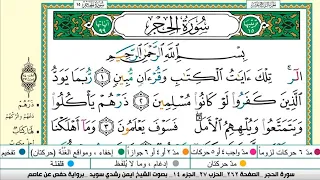 سُورَةُ الحِجْرِ
بِسْمِ اللَّهِ الرَّحْمَٰنِ الرَّحِيمِ
الٓر ۚ تِلْكَ ءَايَٰتُ الْكِتَٰبِ وَقُرْءَانٍ مُّبِينٍ ١ رُّبَمَا يَوَدُّ
الَّذِينَ كَفَرُوا لَوْ كَانُوا مُسْلِمِينَ ٢ ذَرْهُمْ يَأْكُلُوا
وَيَتَمَتَّعُوا وَيُلْهِهِمُ الْأَمَلُ ۖ فَسَوْفَ يَعْلَمُونَ ٣ وَمَا أَهْلَكْنَا
ذَرْهُمْ
مدّ ٦ حركات لزوماً
إخفاء، ومواقع الغُنَّة (حركتان)
تفخيم
مدّ حركتان
إدغام، وما لا يُلفَظ
قلقلة
سورة الحجر الصفحة ٢٦٢ الجزء ١٤ بصوت الشيخ أيمن رشدي سويد برواية حفص عن عاصم